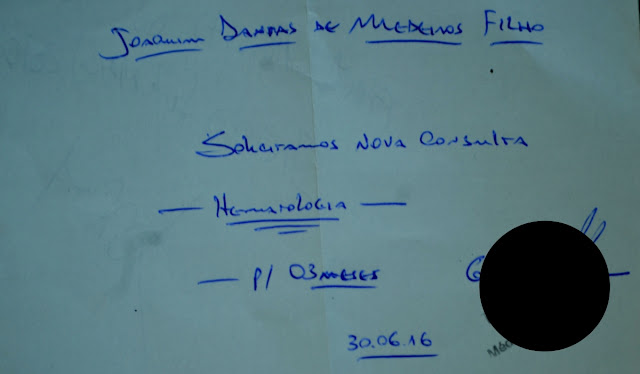 Joaquim Dantas de Medeiros Filho
Solicitamos nova consulta
— Hematologia —
— p/ 03 meses
30.06.16